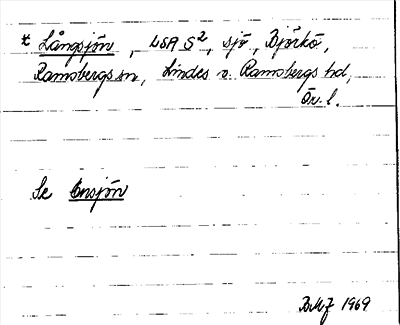 * Långsjön, LSA S², sjö, Björkö,
Ramsbergs sn, Lindes o. Ramsbergs hd,
Ör. l.
Se Ensjön
1969